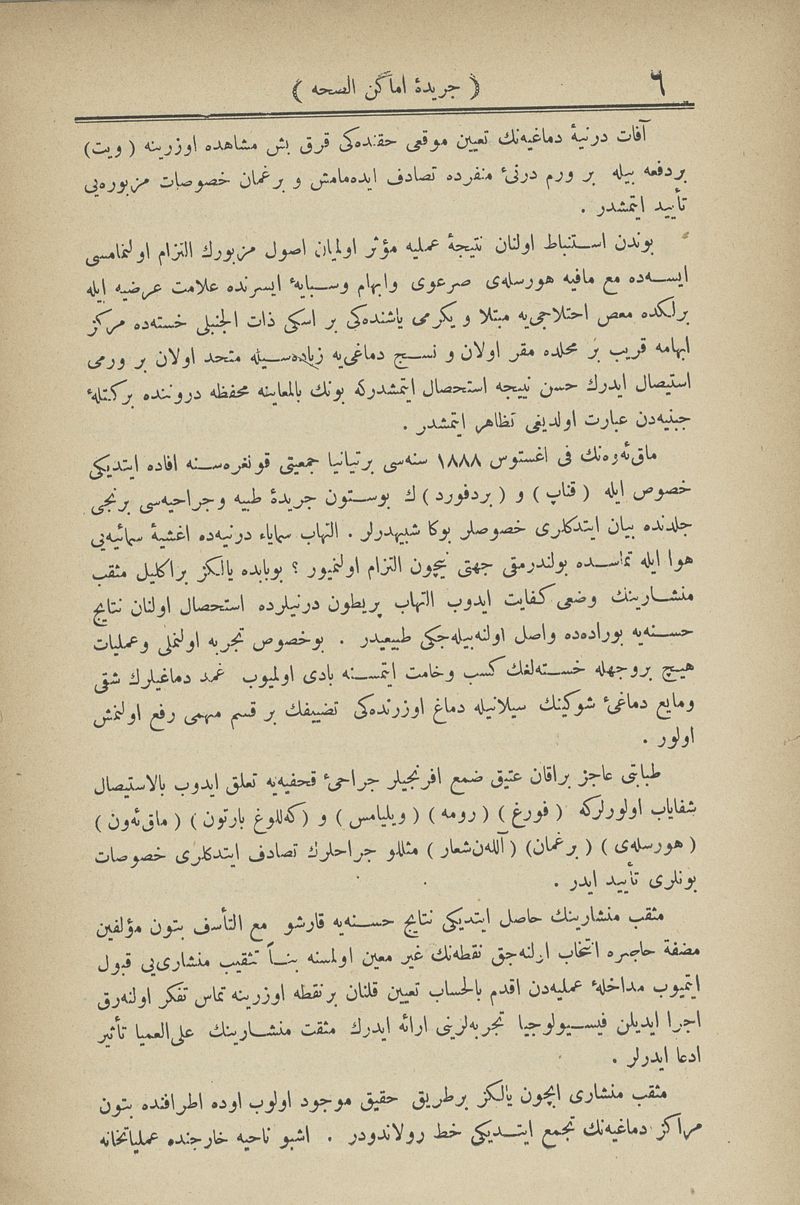 ٦
( جریدۀ اماكن الصحه )
آفات درنیۀ دماغیه‌نك تعیین موقعی حقنده‌كی قرق بش مشاهده اوزرینه ( ویت )
بردفعه بیله بر ورم درنئ منفرده تصادف ایده‌مامش و برغمان خصوصات مزبوره‌یی
تأیید ایتمشدر .
بوندن استنباط اولنان نتیجۀ عملیه مؤثر اولمیان اصول مزبورك التزام اولنمامسی
ایسه‌ده مع مافیه هورسله‌ی صرعوی وابهام وسبابۀ ایسرنده علامت عرضیه ایله
برلكده معص احتلاجی‌یه مبتلا و یكرمی یاشنده‌كی بر اسكی ذات الجنبلی خسته‌ده مركز
ابهامه قریب بر محلده مقر اولان و نسج دماغی‌یه زیاده‌سیله متحد اولان بر ورمی
استیصال ایدرك حسن نتیجه استحصال ایتمشدركه بونك بالمعاینه محفظه دروننده بركتلۀ
جبنیه‌دن عبارت اولدیغی تظاهر ایتمشدر .
ماق‌ئه‌وه‌نك فی اغستوس ۱۸۸۸ سنه‌سی برتیانیا جمعیتی قونغره‌سنه افاده ایتدیكی
خصوص ایله ( قناپ ) و ( بردفورد ) ك بوستون جریدۀ طبیه وجراحیه‌سی برنجی
جلدنده بیان ایتدكلری خصوصلر بوكا شبیهدرلر . التهاب سمایاء درنیه‌ده اغشیۀ سمائیه‌یی
هوا ایله تماسده بولندرمق جهتی نیچون التزام اولنمیور ؟ بوبابده یالكز براكلیل مثقب
منشارینك وضعی كفایت ایدوب التهاب پریطون درنیلرده استحصال اولنان نتایج
حسنه‌یه بوراده‌ده واصل اولنه‌بیله‌جكی طبیعیدر . بوخصوص تجربه اولنملی وعملیات
هیچ بروجهله خسته‌لغك كسب وخامت ایتمسنه بادی اولمیوب غمد دماغیلرك شقی
ومایع دماغئ شوكینك سیلانیله دماغ اوزرنده‌كی تضییقك بر قسم مهمی رفع اولنمش
اولور .
طبابتی عاجز براقان عتیق ضمع افرنجیلر جراحئ قحفیه‌یه تعلق ایدوب بالاستیصال
شفایاب اولورلركه ( فورغ ) ( رومه ) ( ویلیامس ) و ( كه‌للوغ بارتون ) ( ماق‌ئه‌ون )
( هورسله‌ی ) ( برغمان ) ( آلله‌ن‌شعار ) مثللو جراحلرك تصادف ایتدكلری خصوصات
بونلری تأیید ایدر .
مثقب منشارینك حاصل ایتدیكی نتایج حسنه‌یه قارشو مع التأسف بتون مؤلفین
مضفۀ حاجره انتخاب اولنه‌جق نقطه‌نك غیر معین اولمسنه بناً تثقیب منشاری‌یی قبول
ایتمیوب مداخلۀ عملیه‌دن اقدم بالحساب تعیین قلنان برنقطه اوزرینه تماس تفكر اولنه‌رق
اجرا ایدیلن فیسیولوجیا تجربه‌لرینی ارائه ایدرك مثقب منشارینك علی‌العمیا تأثیر
ادعا ایدرلر .
مثقب منشاری ایچون یالكز برطریق حقیق موجود اولوب اوده اطرافنده بتون
مراكز دماغیه‌نك تجمع ایتدیكی خط رولاندودر . اشبو ناحیه خارجنده عملیاتخانه